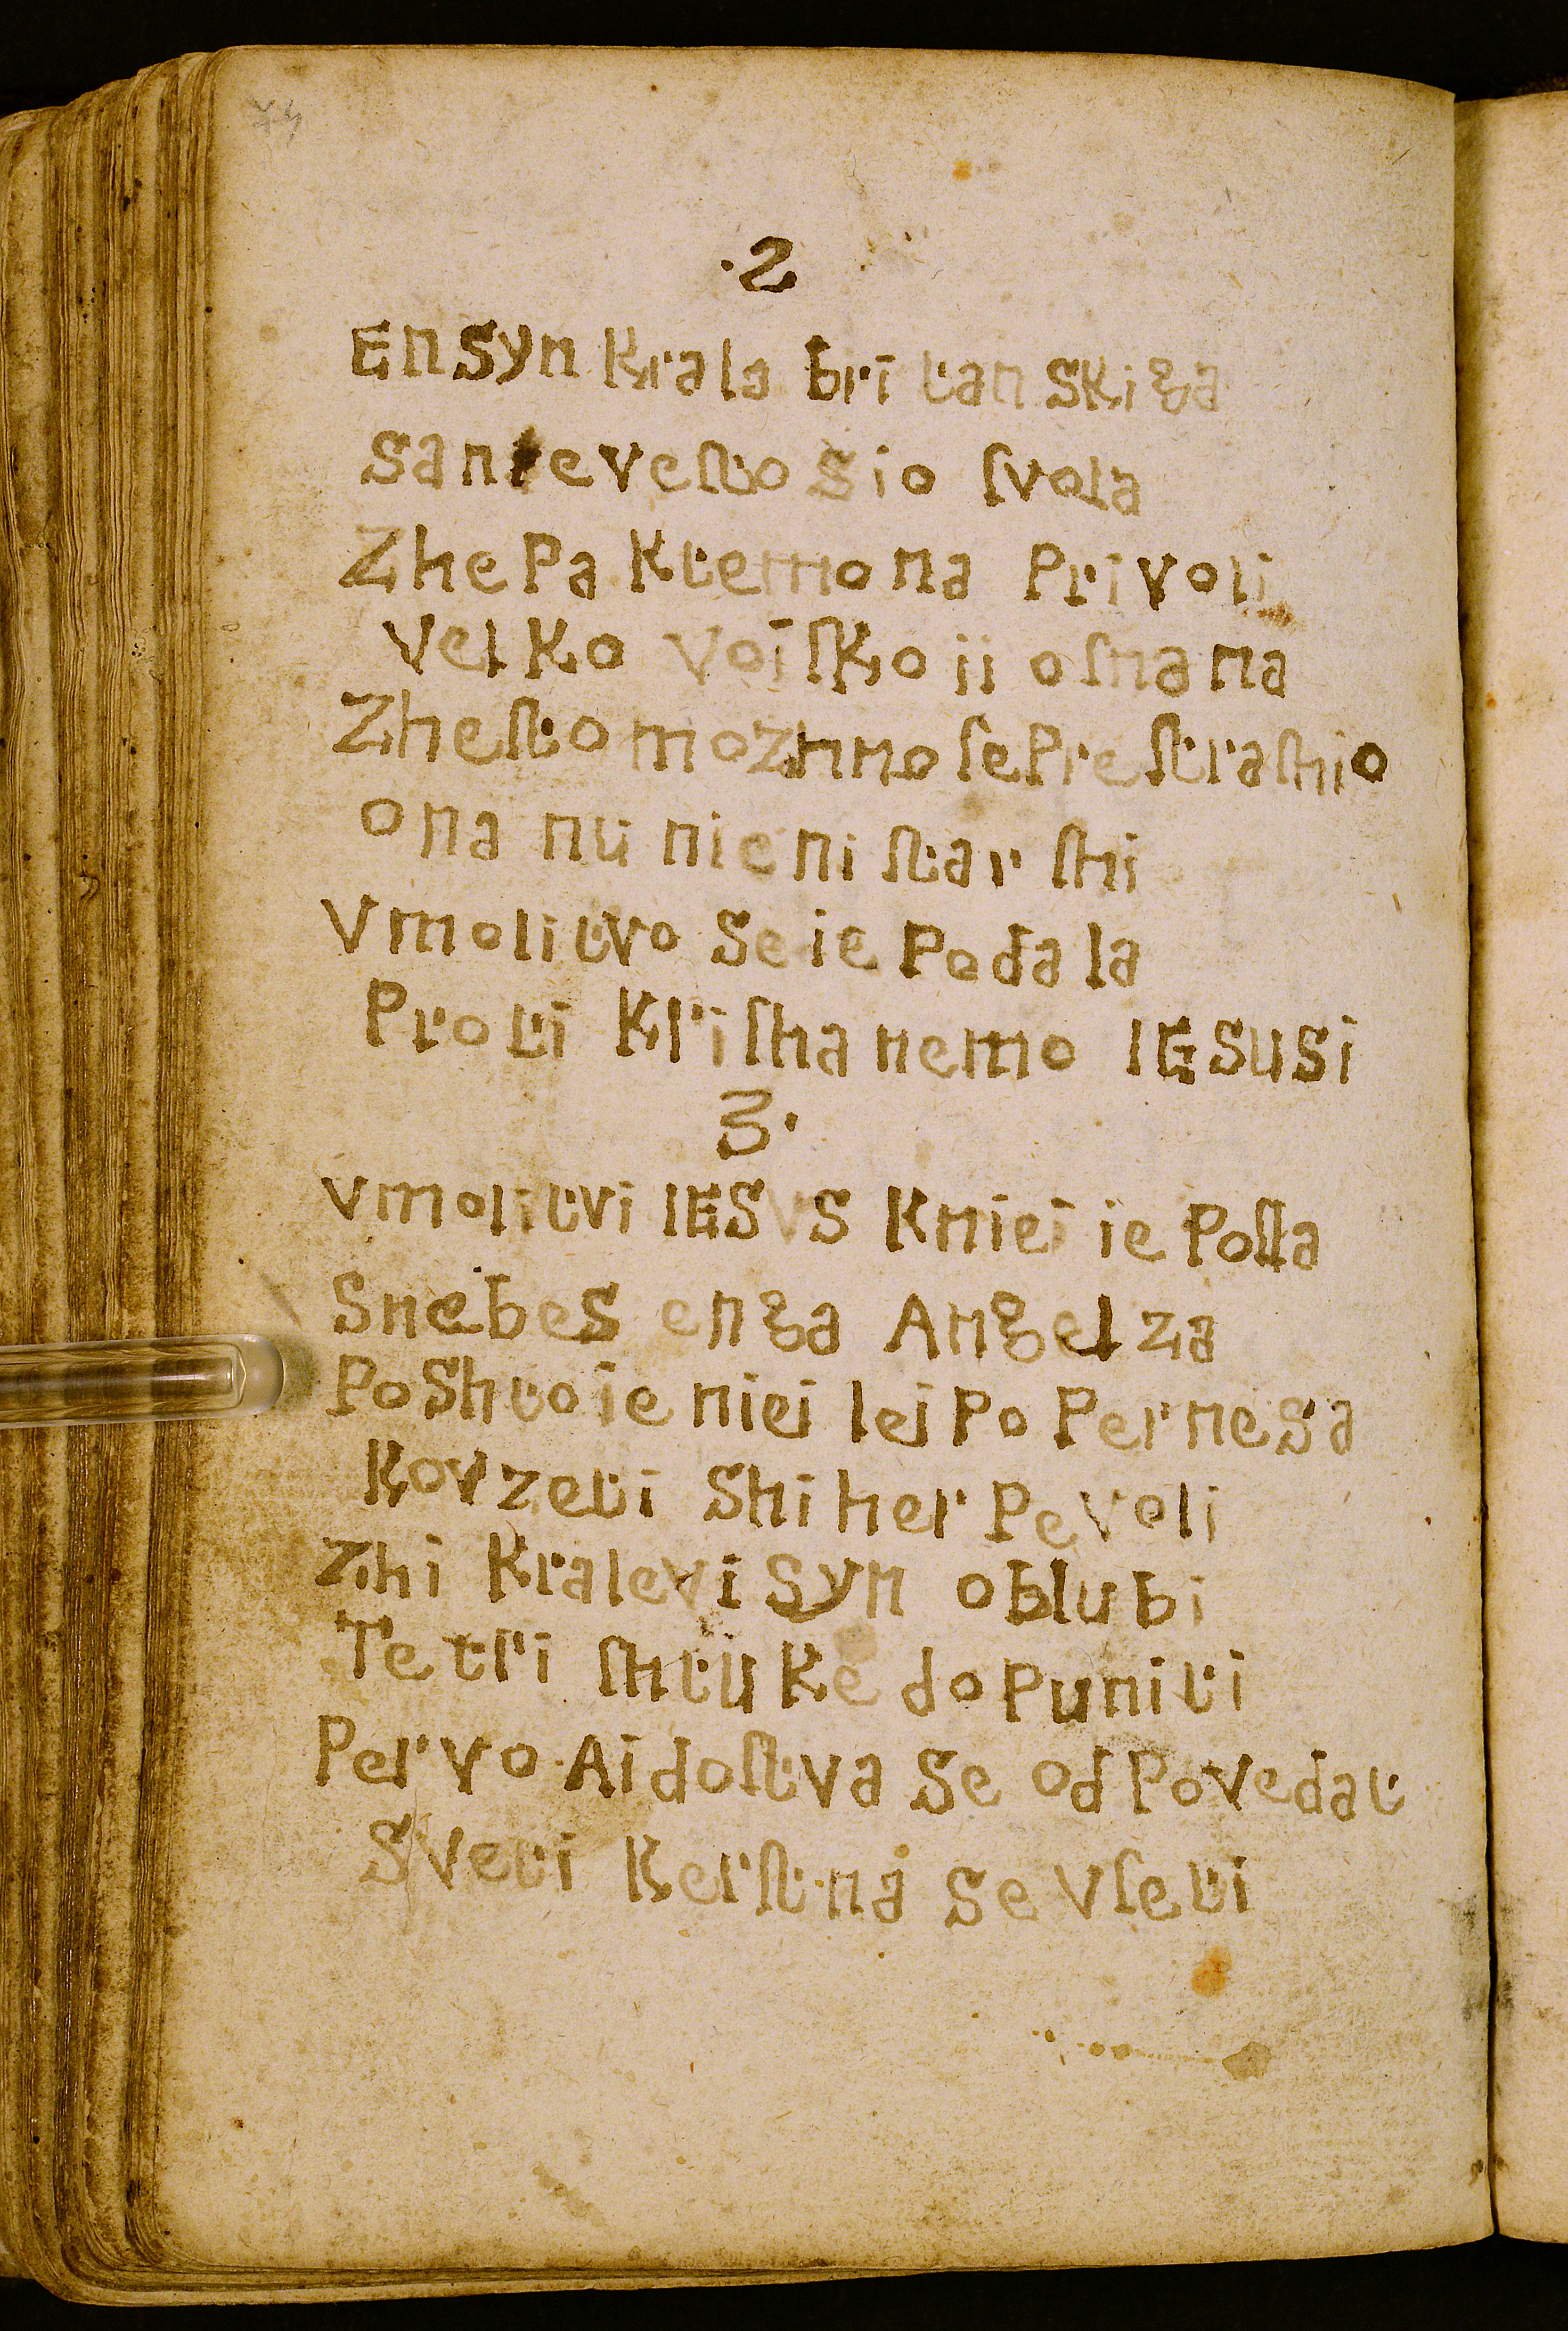 ·2
EnSyn Krala britanskiga
Sanevesto Sio ſvola
ZhePa Ktemona Privoli
velKo voiſKo ji oſnana
Zheſto mozhno ſePreſtraſhio
ona nu nieni ſtarſhi
vmolitvo Se ie Podala
Proti Kriſthanemo IESUSi
3·
vmolitvi IESVS Kniei ie Poſla
Snebes enga Angelza
PoShto ie niei lei Po Pernesa
Kovzeti Shiher Pevoli
Zhi Kralevi Syn oblubi
Te tri ſhtuKe doPuniti
Pervo Aidoſtva Se odPovedat
Sveti Kerſt na Se vſeti